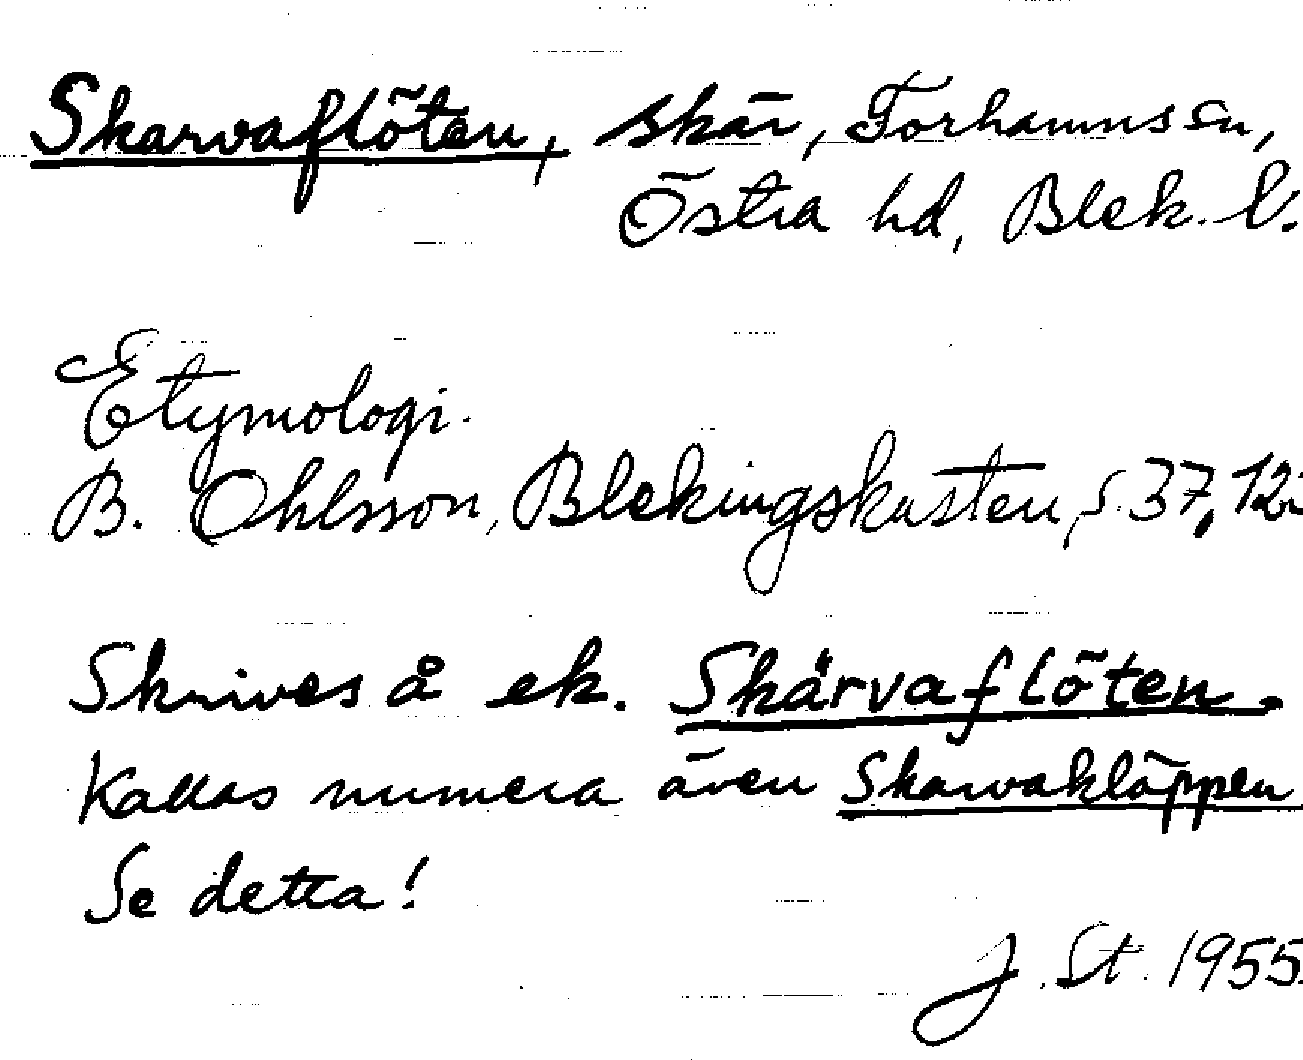 Skarvaflöten, skär, Torhamns sn,
Östra hd, Blek. l.
Etymologi.
B. Ohlsson, Blekingskusten, s. 37,
Skrives å ek. Skärvaflöten.
Kallas numera även Skarvakläppen
Se detta!
J. St. 1955.